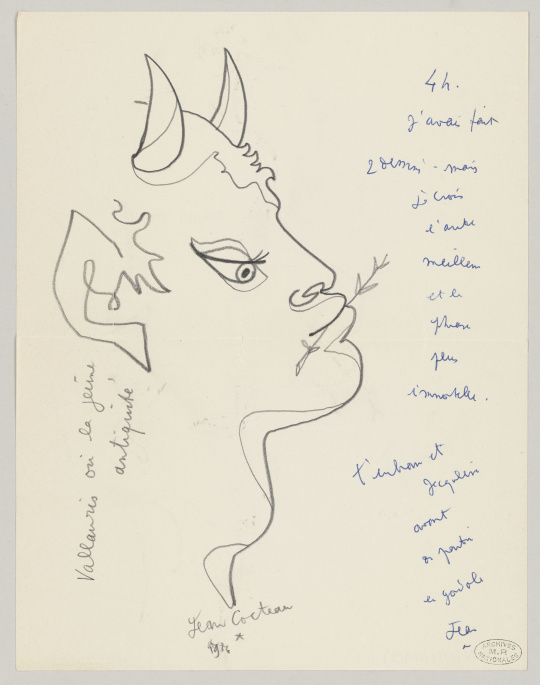 4h.
J'avais fait
2 dessins - mais
je crois
l'autre
meilleur
et la
phrase
plus
immortelle.
t'embrasse et
Jacqueline
avant
de partir
en gondole
Jean
Vallauris où la jeune
antiquité
Jean Cocteau
*
ARCHIVES
M.P
NATIONALES